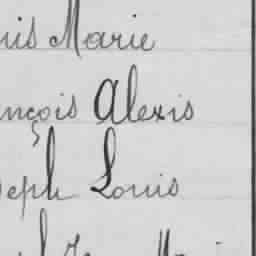 uis Marie
ançois Alexis
seph Louis